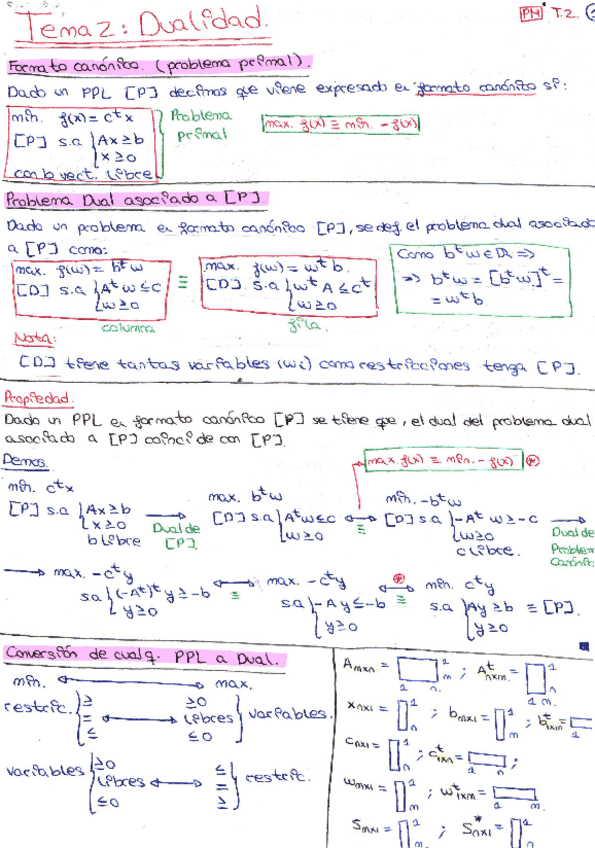 Tema 2: Dualidad.
PM T.2.
Formato canónico. (problema primal).
Dado un PPL [P] decimos que viene expresado en formato canónico si:
min. f(x) = cᵗx
[P] s.a { Ax ≥ b
x ≥ 0
con b vect. libre
Problema primal
max. f(x) ≡ min. -f(x)
Problema Dual asociado a [P]
Dado un problema en formato canónico [P], se def. el problema dual asociado
a [P] como:
max. g(w) = bᵗw
[D] s.a { Aᵗw ≤ c
w ≥ 0
columna
≡
max. g(w) = wᵗb.
[D] s.a { wᵗA ≤ cᵗ
w ≥ 0
fila.
Como bᵗw ∈ ℝ ⇒
⇒ bᵗw = [bᵗw]ᵗ =
= wᵗb.
Nota:
[D] tiene tantas variables (wi) como restricciones tenga [P].
Propiedad.
Dado un PPL en formato canónico [P] se tiene que, el dual del problema dual
asociado a [P] coincide con [P].
Demos.
max f(x) ≡ min. -f(x) ⊛
min. cᵗx
[P] s.a { Ax ≥ b
x ≥ 0
b libre
→ Dual de [P].
max. bᵗw
[D] s.a { Aᵗw ≤ c
w ≥ 0
↔ ≡
min. -bᵗw
[D] s.a { -Aᵗw ≥ -c
w ≥ 0
c libre.
→ Dual de Problem Canónic
→ max. -cᵗy
s.a { (-Aᵗ)ᵗy ≥ -b
y ≥ 0
↔ ≡
max. -cᵗy
s.a { -Ay ≤ -b
y ≥ 0
⊛ ↔ ≡
min. cᵗy
s.a { Ay ≥ b ≡ [P].
y ≥ 0
Conversión de cualq. PPL a Dual.
min. ↔ max.
restric. { ≥ ≥0
= ↔ libres } variables.
≤ ≤0
variables { ≥0 ≤
libres ↔ = } restric.
≤0 ≥
Amxn = 1 m 1 n. ; Aᵗnxm = 1 n 1 m.
xnx1 = 1 n ; bmx1 = 1 m ; bᵗ1xm =
cnx1 = 1 n ; cᵗ1xn = 1 n ;
wmx1 = 1 m ; wᵗ1xm = 1 m.
Smx1 = 1 m ; S*nx1 = 1 n